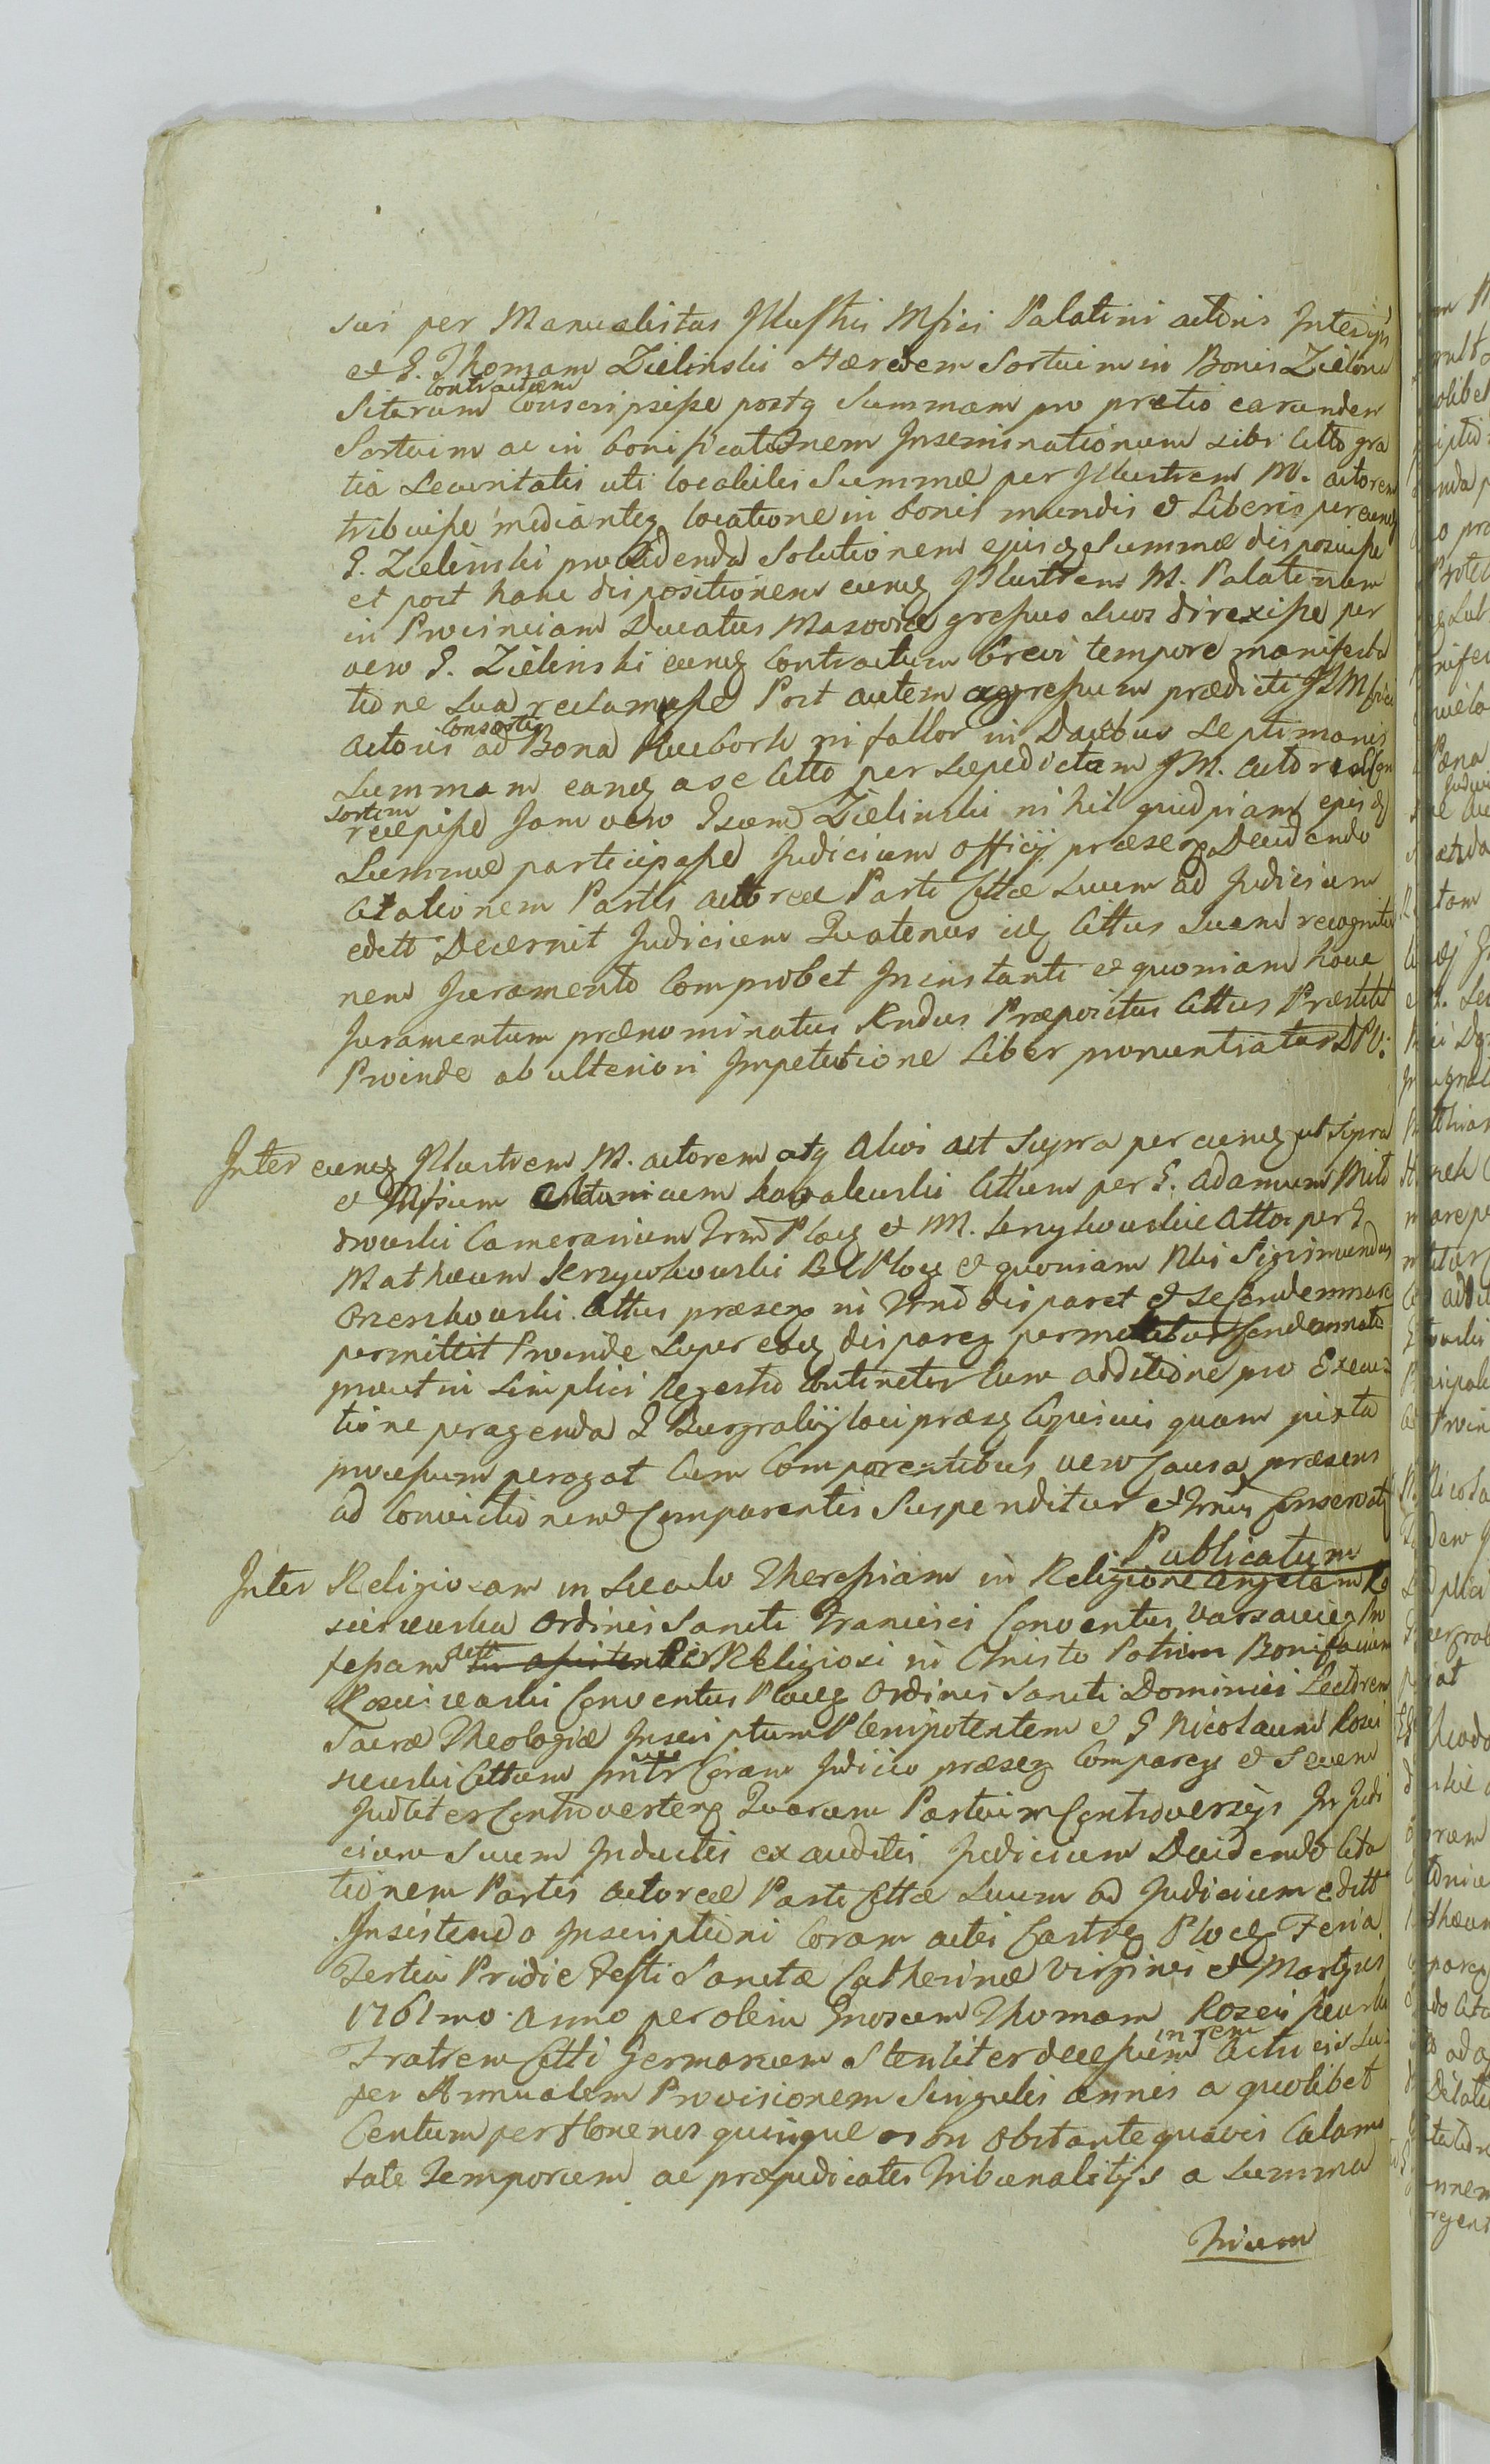 sui per Manualistas Illustris Mfici Palatini actoris Inter
et G. Thomam Zielinski Hæredem Sortium in Bonis Zielona
Contractum
Sitarum Conscripsisse postq Summam pro pretio earunden
Sortium ac in bonificationem Inseminationum sibi Citto gra
tia Securitatis uti localilis Summæ per Illustrem M. actorem
tribuisse mediante locatione in bonis mundis et Liberis per eunq
G. Zielinski providenda Solutionem ejusq Summæ disposuisse
et post hanc dispositionem eunq Illustrem M. Palatinum
in Provinciam Ducatus Masoviæ gressus suos direxisse per
vero G. Zielinski eunq Contractum brevi tempore manifesta
tione sua reclamasse Post autem aggressum prædicti
Consortis
actoris ad Bona ni fallor in Duabus Septimanis
Summam eanq a se Citto per sæpedictam JM. actoris Con
sortem
recepisse Jam vero Gsum Zielinski nihil quidpiam ejusq
Summæ participasse Judicium officij præsenq Decidendo
Citationem Partis actoreæ Parti Cittæ Suum ad Judicium
editt Decernit Judicium Quatenus isq Cittus Suam recognitio
nem Juramento Comprobet In instanti et quoniam hocce
Juramentum prænominatus Rndus Præpositus Cittus Præstitit
Proinde ab ulteriori Impetitione Liber pronuntiatur DPV:
Inter eunq Illustrem M. actorem atq alios ut Supra per eunq ut Supra
et Mficum Antonium Kowalewski Cittum per G. Adamum Mito
drowski Camerarium Trrae Ploceq et M. Krzykowskie Cittos per G
Mathæum Krzywkowski BC Ploce et quoniam Nlis Sigismundus
Orzeszkowski Cittus præsenq in Trno disparet et se Condemnare
permittit Proinde Super eoq disparenq permittitur Condemnatio
prout in Simplici Regestro Continetur Cum additione pro Execu
tione peragenda G Burgrabij loci præsenq Cujusvis quam juxta
processum peragat Cum Comparentibus vero Causa præsens
ad Convictionem Comparentis Suspenditur et Trnus Conservatq
Publicatum
Inter Religiosam in Sæculo Theressiam in Religione Angelam Ro
sciszewska Ordinis Sancti Francisci Conventus Varsavieq Pro
fessam
Religiosi in Christo Patrim Bonifacium
Rosciszewski Conventus Ploceq Ordinis Sancti Dominici Lectorem
Sacræ Theologiæ Inscriptum Plenipotentem et G Nicolaum Rosci
szewski Cittum Coram Judicio præsenq Comparenq et Secum
Judlit er Controvertenq Quarum Partium Controversijs In Judi
cium Suum Inductis exauditis Judicium Decidendo Cita
tionem Partis actoreæ Parti Cittæ Suum ad Judicium editt
Insistendo Inscriptioni Coram actis Castreq Ploceq Feria
Tertia Pridie Festi Sanctæ Catherinæ Virginis et Martyris
1761mo anno per olim Gnosum Thomam Rosciszewski
in rem
Fratrem Citti Germanum Steriliter decessum actricis Su
per Annualem Provisionem Singulis annis a quolibet
Centum per florenos quinque non obstante quavis Calami
tate Temporum ac præjudicatis Tribunalitijs a Summa
Trium